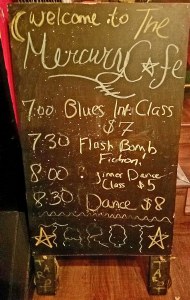 Welcome to The
Mercury Cafe
7:00 Blues Int. Class
$7
7:30 Flash Bomb
Fiction,
8:00 Dance
Class $5
8:30 Dance $8
TAROT